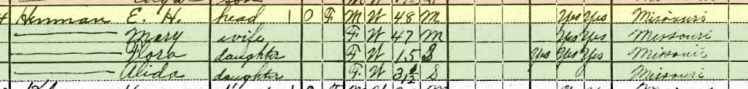 Henman E. H. head 1 O F M W 48 M Yes Yes Missouri
Mary wife F W 47 M Yes Yes Missouri
Flora daughter F W 15 S Yes Yes Yes Missouri
Alida daughter F W S Missouri